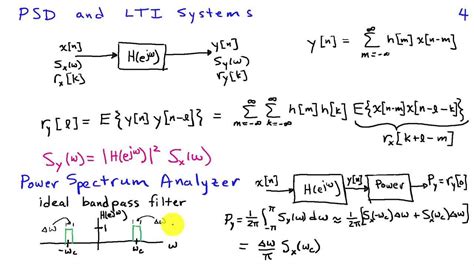 PSD and LTI Systems 4
x[n] H(e^{jω}) y[n]
S_x(ω) S_y(ω)
r_x[k] r_y[k]
y[n] = ∑_{m=-∞}^{∞} h[m] x[n-m]
r_y[l] = E{y[n] y[n-l]} = ∑_{m=-∞}^{∞} ∑_{k=-∞}^{∞} h[m] h[k] E{x[n-m] x[n-l-k]}
r_x[k+l-m]
S_y(ω) = |H(e^{jω})|² S_x(ω)
Power Spectrum Analyzer
x[n] H(e^{jω}) y[n] Power P_y = r_y[0]
ideal bandpass filter
H(e^{jω})
Δω 1 Δω
-ω_c ω_c ω
P_y = 1/2π ∫_{-π}^{π} S_y(ω) dω ≈ 1/2π [S_x(-ω_c) Δω + S_x(ω_c) Δω]
= Δω/π S_x(ω_c)